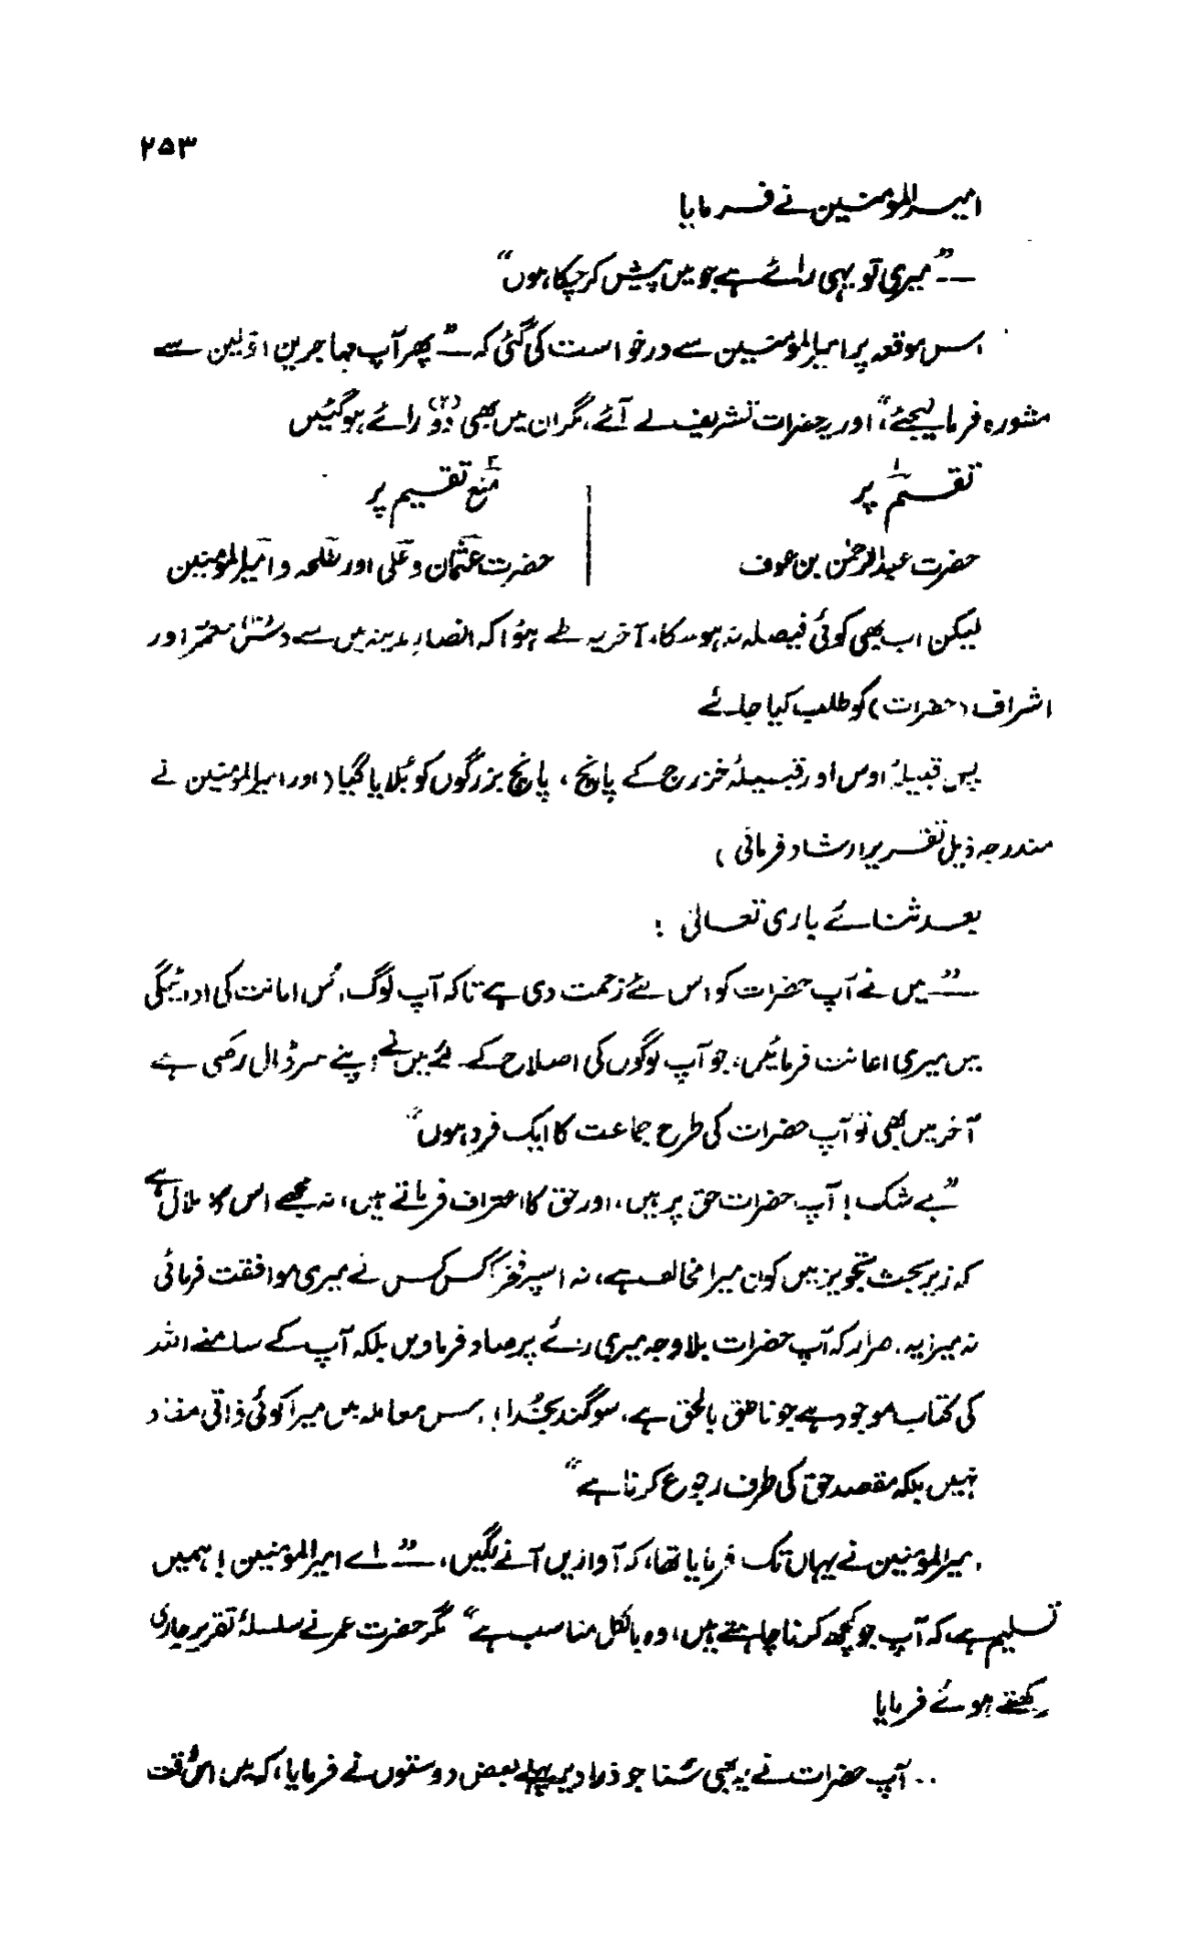 ۲۵۳
امیرالمؤمنین نے فرمایا
— "میری تو یہی رائے ہے جو میں پیش کر چکا ہوں"
اس موقعہ پر امیرالمؤمنین سے درخواست کی گئی کہ — "پھر آپ مہاجرین اوّلین سے
مشورہ فرما لیجئے"، اور یہ حضرات تشریف لے آئے، مگر ان میں بھی دو (۲) رائے ہو گئیں
تقسیم پر | منع تقسیم پر
حضرت عبدالرحمٰن بن عوف | حضرت عثمان و علی اور طلحہ و امیرالمؤمنین
لیکن اب بھی کوئی فیصلہ نہ ہو سکا، آخر یہ طے ہوا کہ انصار مدینہ میں سے دس (۱۰) معمّر اور
اشراف (حضرات) کو طلب کیا جائے
پس قبیلۂ اوس اور قبیلۂ خزرج کے پانچ، پانچ بزرگوں کو بُلایا گیا (اور امیرالمؤمنین نے
مندرجہ ذیل تقریر ارشاد فرمائی)
بعد ثنائے باری تعالیٰ :
— "میں نے آپ حضرات کو اس لئے زحمت دی ہے تاکہ آپ لوگ اُس امانت کی ادائیگی
میں میری اعانت فرمائیں، جو آپ لوگوں کی اصلاح کے لئے میں نے اپنے سر ڈال رکھی ہے
آخر میں بھی تو آپ حضرات کی طرح جماعت کا ایک فرد ہوں"
"بے شک! آپ حضرات حق پر ہیں، اور حق کا اعتراف فرماتے ہیں، نہ مجھے اس کا ملال ہے
کہ زیر بحث تجویز میں کون میرا مخالف ہے، نہ اس پر فخر کہ کس کس نے میری موافقت فرمائی
نہ میرا یہ اصرار کہ آپ حضرات بلا وجہ میری رائے پر صاد فرماویں بلکہ آپ کے سامنے اللہ
کی کتاب موجود ہے جو ناطق بالحق ہے، سوگند بخُدا! اس معاملہ میں میرا کوئی ذاتی مفاد
نہیں بلکہ مقصد حق کی طرف رجوع کرنا ہے"
امیرالمؤمنین نے یہاں تک فرمایا تھا، کہ آوازیں آنے لگیں، — "اے امیرالمؤمنین! ہمیں
تسلیم ہے، کہ آپ جو کچھ کرنا چاہتے ہیں، وہ بالکل مناسب ہے" مگر حضرت عمر نے سلسلۂ تقریر جاری
رکھتے ہوئے فرمایا
.. آپ حضرات نے یہ بھی سُنا جو ذرا دیر پہلے بعض دوستوں نے فرمایا، کہ میں اس وقت